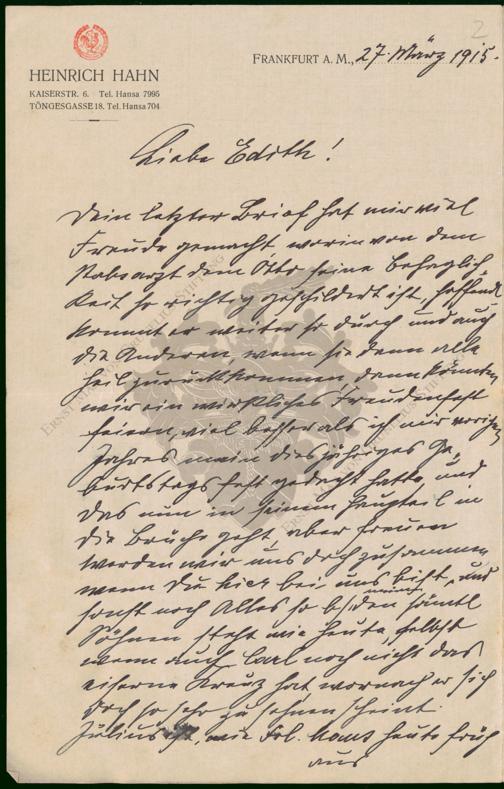 2
HEINRICH HAHN
KAISERSTR. 6. Tel. Hansa 7995
TÖNGESGASSE 18. Tel. Hansa 704
FRANKFURT A. M., 27. März 1915.
Liebe Edith!
Dein letzter Brief hat mir viel
Freude gemacht worin von dem
Stabsarzt dem Otto seine Behaglich-
keit so richtig geschildert ist, hoffend
kommt er weiter so durch und auch
die Anderen, wenn sie dann alle
heil zurückkommen, dann könnten
wir ein wirkliches Freudenfest
feiern, viel besser als ich mir voriges
Jahres mein diesjähriges Ge-
burtstagsfest gedacht hatte, und
das nun in seinem Hauptteil in
die Brüche geht, aber freuen
werden wir uns doch zusammen
wenn Du hier bei uns bist, und
sonst noch Alles so bei den meinen sämtl
Söhnen steht wie heute, selbst
wenn auch Carl noch nicht das
eiserne Kreuz hat wornach er sich
doch so sehr zu sehnen scheint.
Julius ist, wie Frl. heute früh
aus